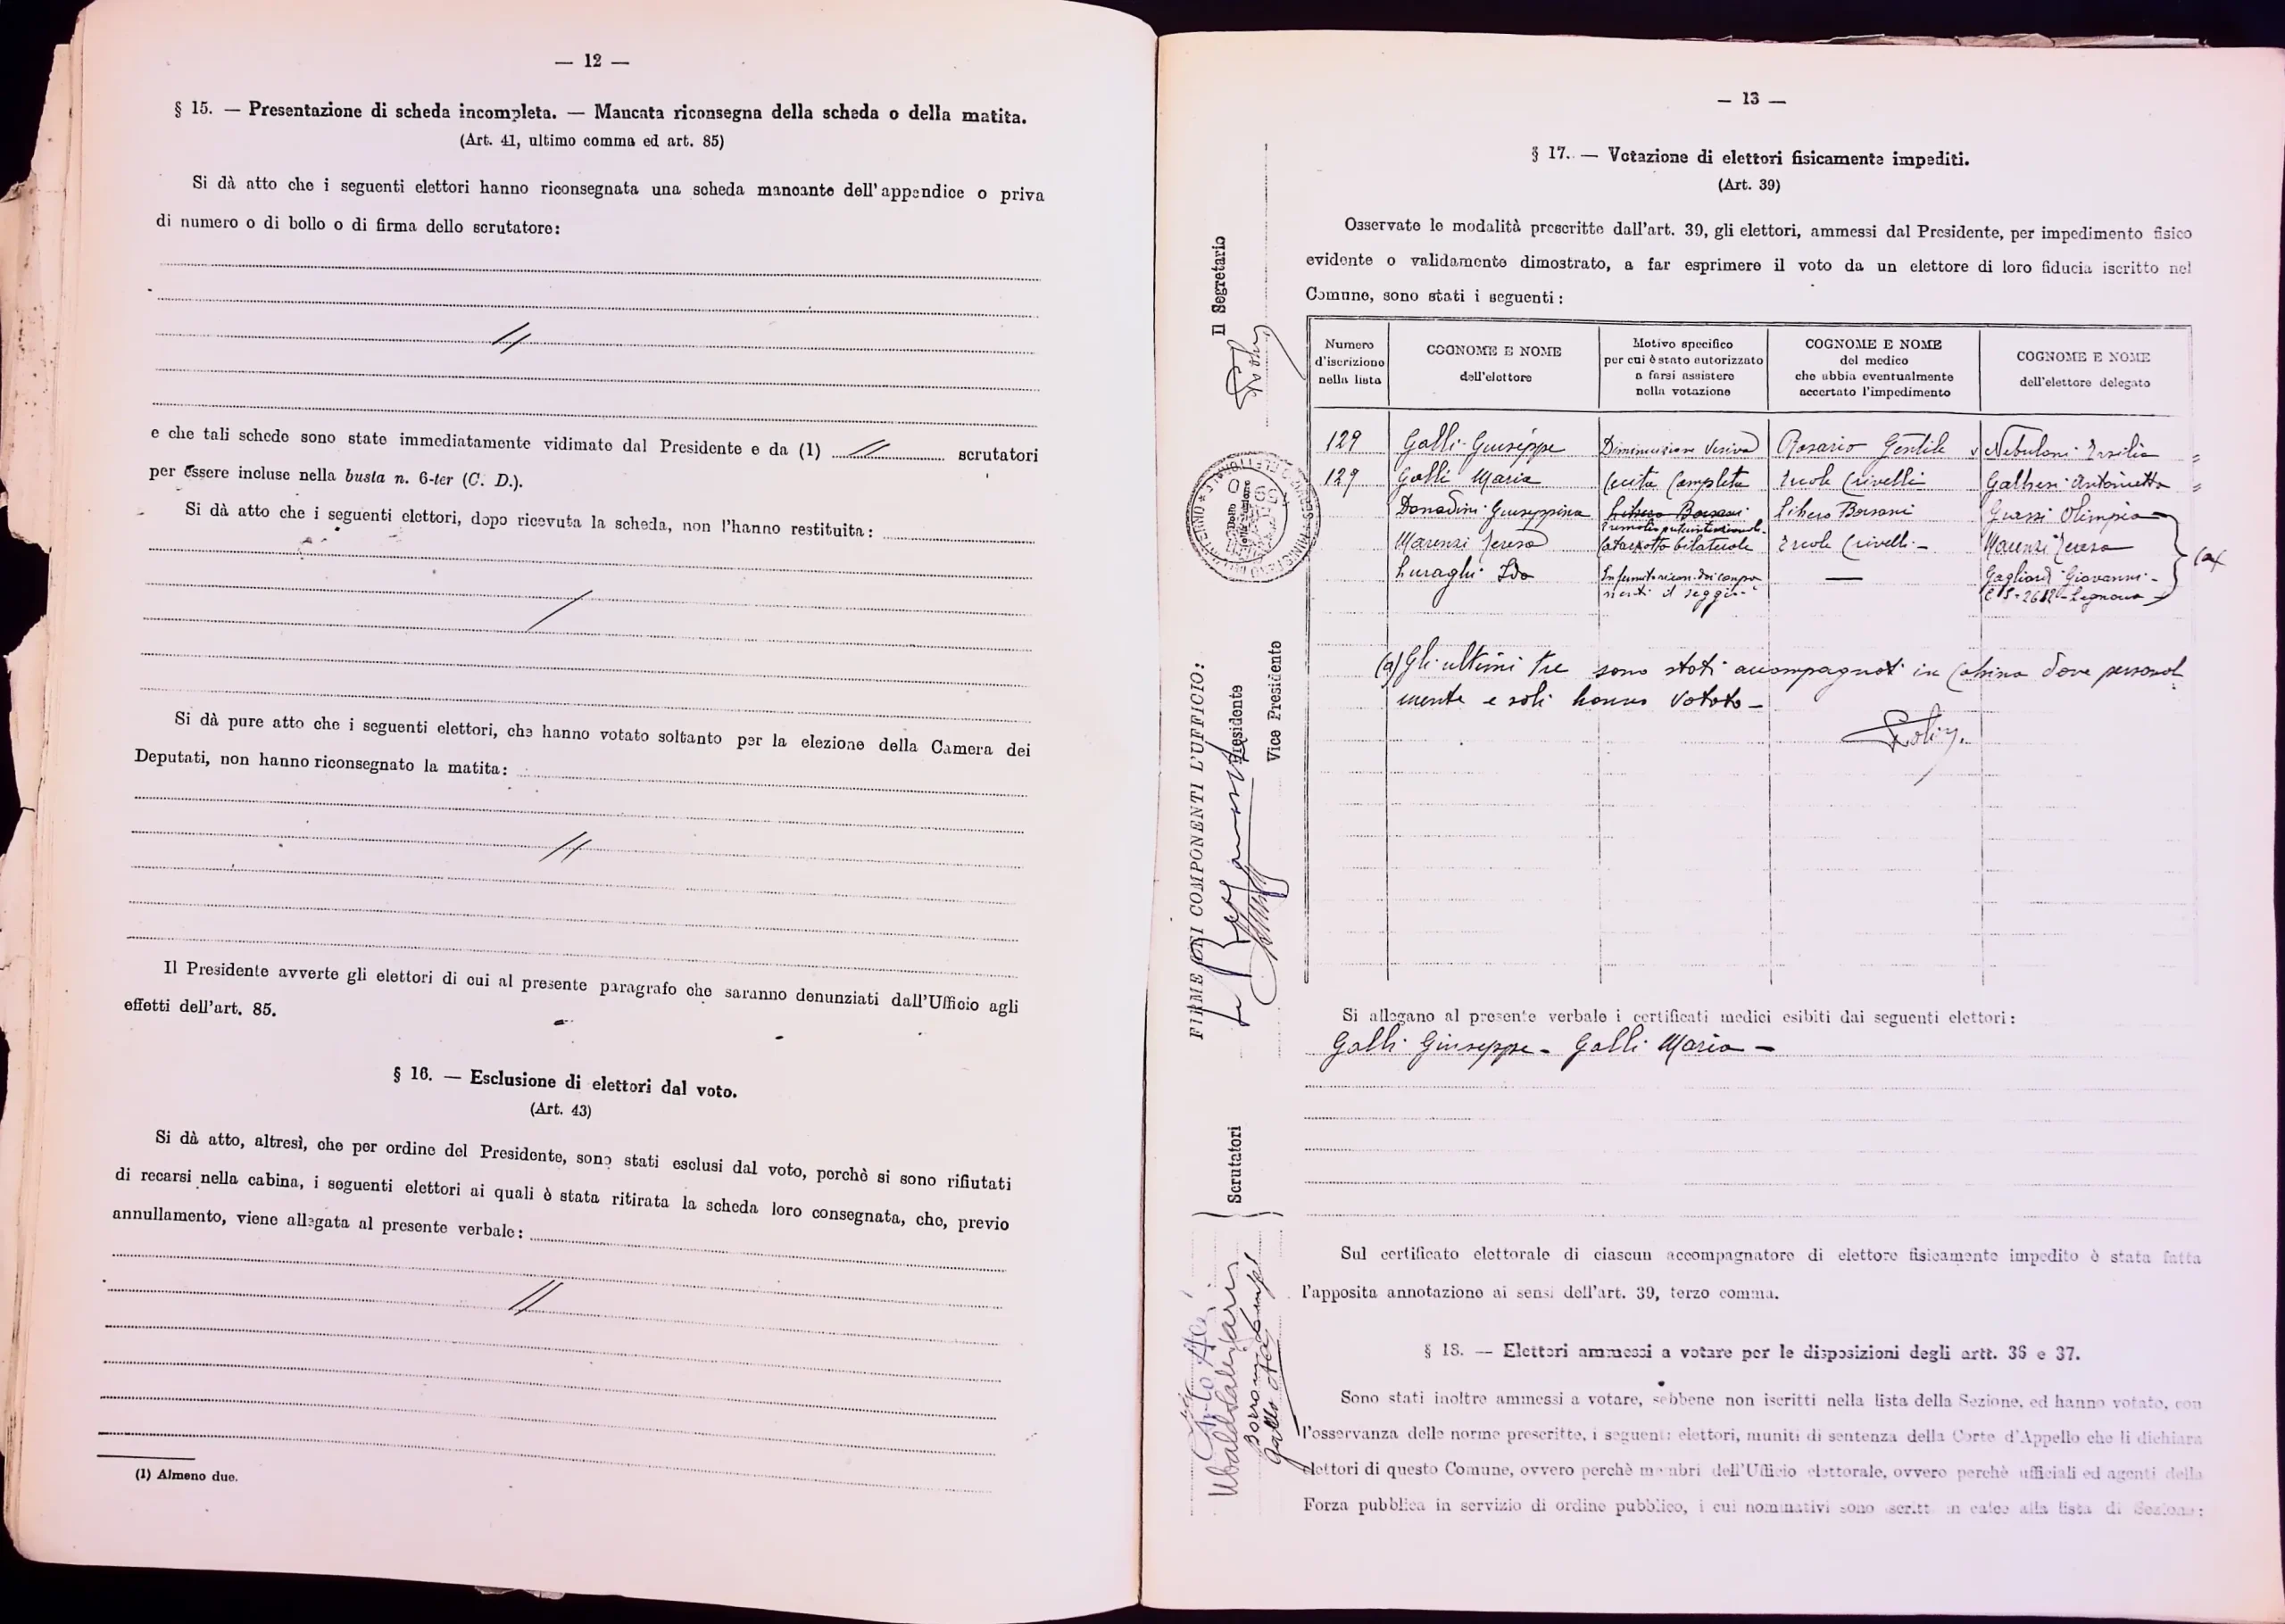 — 12 —
§ 15. — Presentazione di scheda incompleta. — Mancata riconsegna della scheda o della matita.
(Art. 41, ultimo comma ed art. 85)
Si dà atto che i seguenti elettori hanno riconsegnata una scheda mancante dell'appendice o priva
di numero o di bollo o di firma dello scrutatore:
//
e che tali schede sono state immediatamente vidimate dal Presidente e da (1) // scrutatori
per essere incluse nella busta n. 6-ter (C. D.).
Si dà atto che i seguenti elettori, dopo ricevuta la scheda, non l'hanno restituita:
/
Si dà pure atto che i seguenti elettori, che hanno votato soltanto per la elezione della Camera dei
Deputati, non hanno riconsegnato la matita:
//
Il Presidente avverte gli elettori di cui al presente paragrafo che saranno denunziati dall'Ufficio agli
effetti dell'art. 85.
§ 16. — Esclusione di elettori dal voto.
(Art. 43)
Si dà atto, altresì, che per ordine del Presidente, sono stati esclusi dal voto, perchè si sono rifiutati
di recarsi nella cabina, i seguenti elettori ai quali è stata ritirata la scheda loro consegnata, che, previo
annullamento, viene allegata al presente verbale:
//
(1) Almeno due.
— 13 —
§ 17. — Votazione di elettori fisicamente impediti.
(Art. 39)
Osservate le modalità prescritte dall'art. 39, gli elettori, ammessi dal Presidente, per impedimento fisico
evidente o validamente dimostrato, a far esprimere il voto da un elettore di loro fiducia iscritto nel
Comune, sono stati i seguenti:
Numero d'iscrizione nella lista
COGNOME E NOME dell'elettore
Motivo specifico per cui è stato autorizzato a farsi assistere nella votazione
COGNOME E NOME del medico che abbia eventualmente accertato l'impedimento
COGNOME E NOME dell'elettore delegato
129 Galli Giuseppe Diminuzione Visiva Rosario Gentile Nebuloni Ersilia
129 Galli Maria Cecità Completa Ercole Crivelli Antonietta
Donadini Giuseppina Libero Borsani Grassi Olimpia
Marenzi Teresa Cataratta bilaterale Ercole Crivelli — Marenzi Teresa
Luraghi Ida — Gagliardi Giovanni
Legnano (a)
(a) Gli ultimi tre sono stati accompagnati in Cabina dove personal
mente e soli hanno votato —
Si allegano al presente verbale i certificati medici esibiti dai seguenti elettori:
Galli Giuseppe - Galli Maria —
Sul certificato elettorale di ciascun accompagnatore di elettore fisicamente impedito è stata fatta
l'apposita annotazione ai sensi dell'art. 39, terzo comma.
§ 18. — Elettori ammessi a votare per le disposizioni degli artt. 36 e 37.
Sono stati inoltre ammessi a votare, sebbene non iscritti nella lista della Sezione, ed hanno votato, con
l'osservanza delle norme prescritte, i seguenti elettori, muniti di sentenza della Corte d'Appello che li dichiara
elettori di questo Comune, ovvero perchè membri dell'Ufficio elettorale, ovvero perchè ufficiali ed agenti della
Forza pubblica in servizio di ordine pubblico, i cui nominativi sono iscritti in calce alla lista di Sezione:
FIRME DEI COMPONENTI L'UFFICIO:
Il Segretario
Presidente
Vice Presidente
Scrutatori